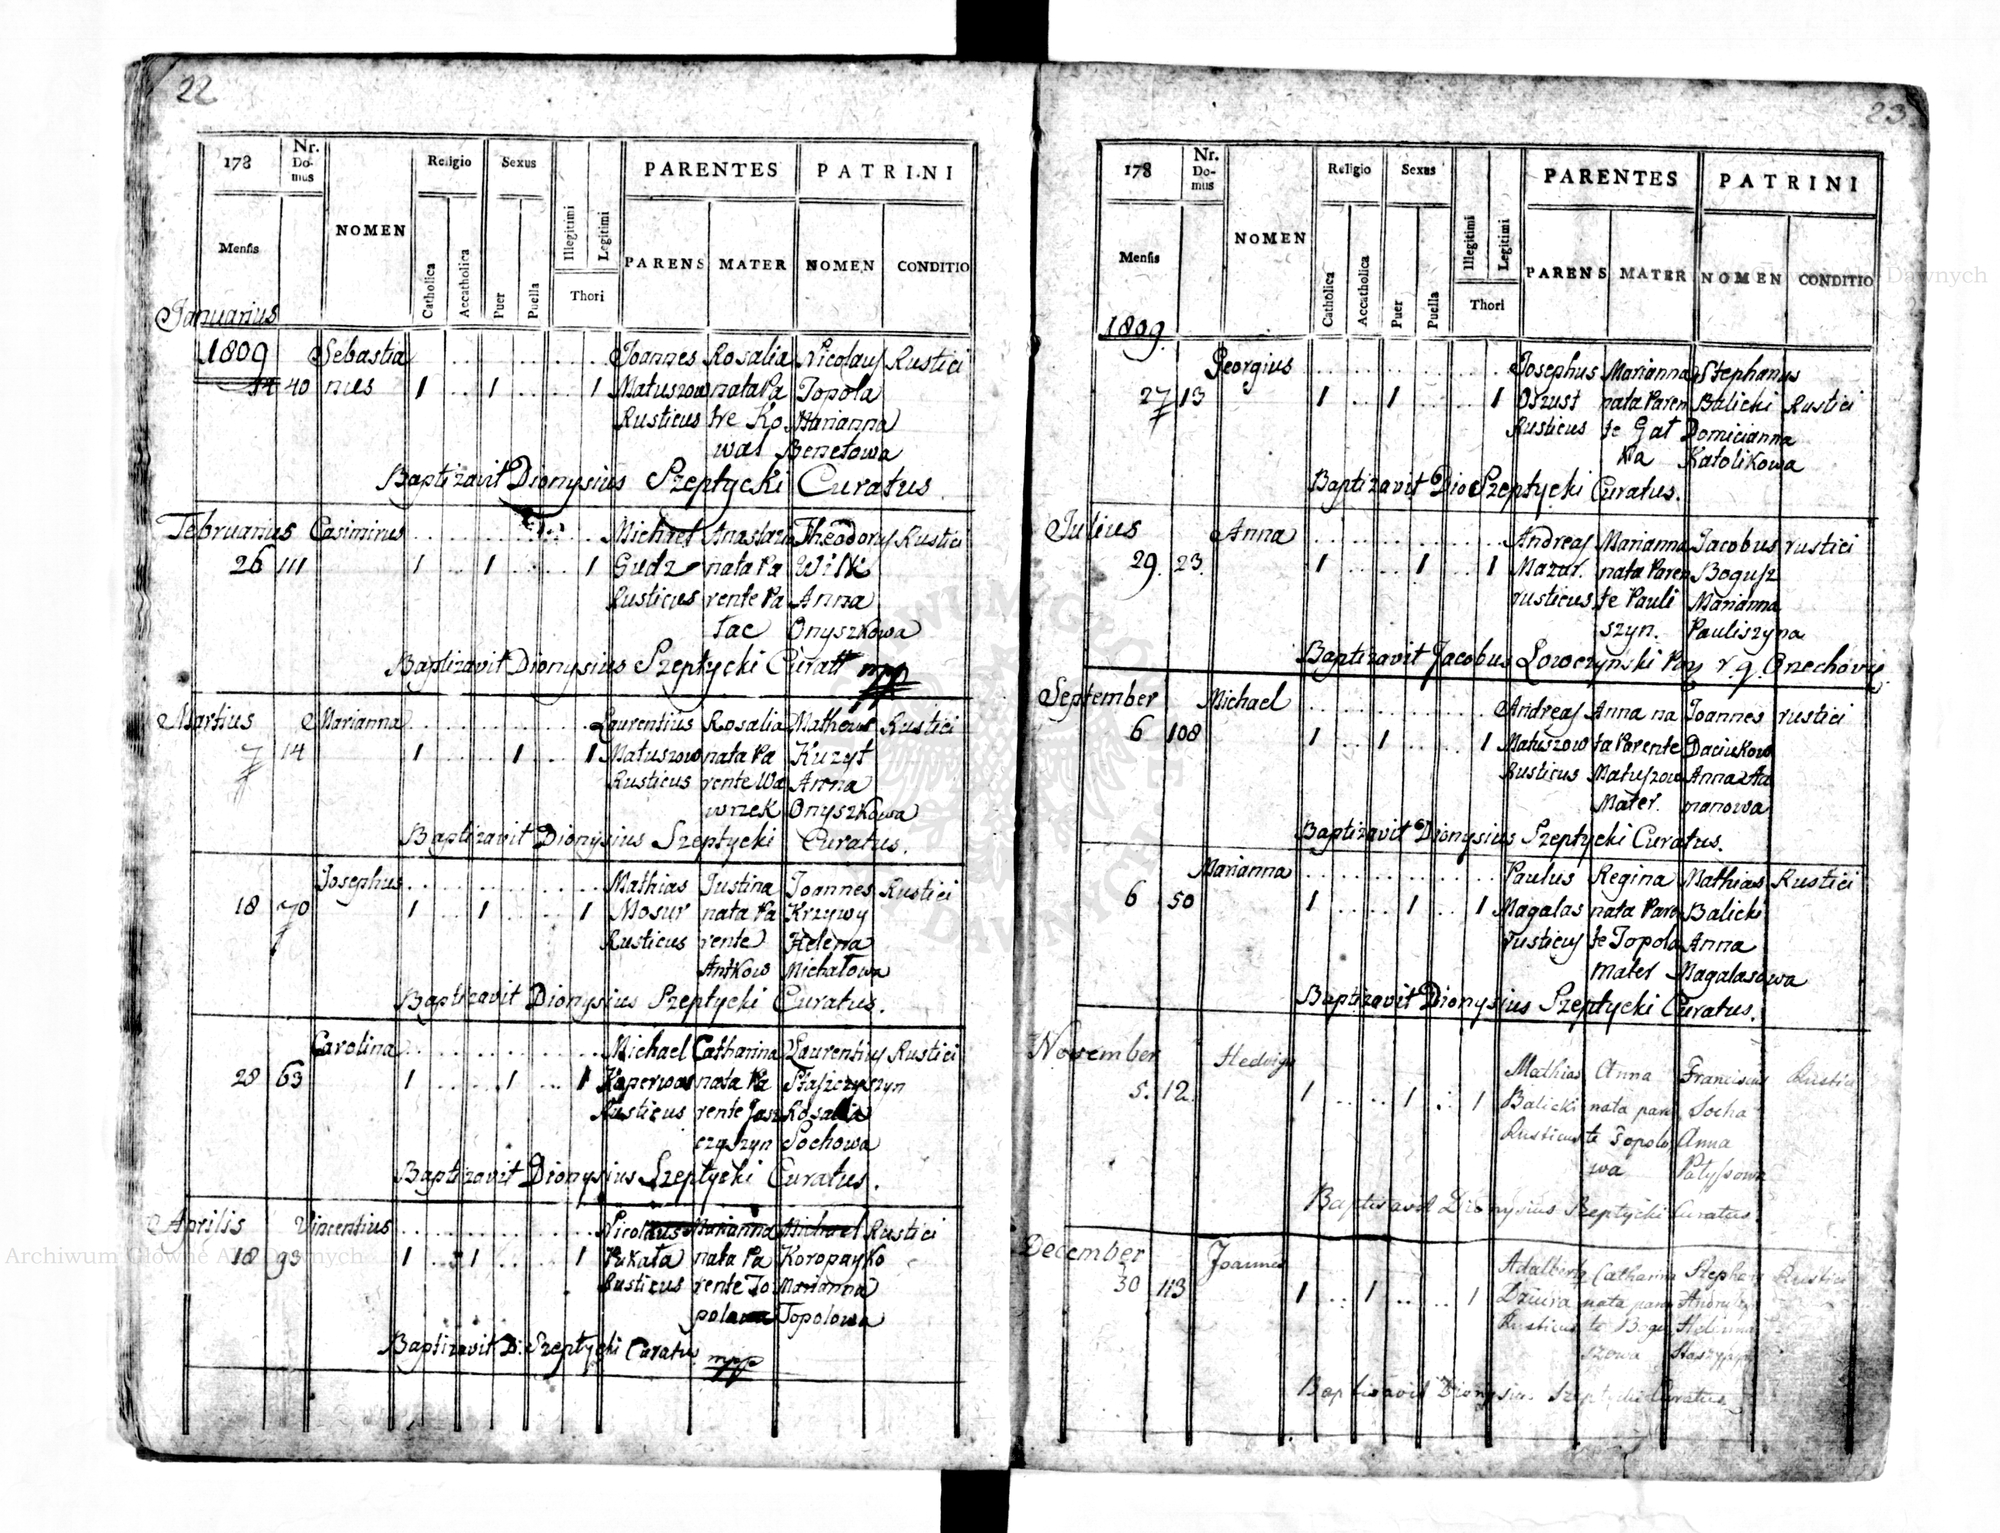 22
178
Nr. Do- mus
Religio
Sexus
PARENTES
PATRINI
Mensis
NOMEN
Catholica
Accatholica
Puer
Puella
Illegitimi
Legitimi
Thori
PARENS
MATER
NOMEN
CONDITIO
Januarius
1809 Sebastia Joannes Rosalia Nicolaus Rustici
14 40 nus 1 1 1 Matuszow nata Pa Topola
Rusticus re Ko Marianna
wal Benetowa
Baptizavit Dionysius Szeptycki Curatus
Februarius Casimirus Michael Anastazia Theodorus Rustici
26 111 1 1 1 Gudz nata Pa Wilk
Rusticus rente Pa Anna
łac Onyszkowa
Baptizavit Dionysius Szeptycki Curatt mpp
Martius Marianna Laurentius Rosalia Matheus Rustici
7 14 1 1 1 Matuszow nata Pa Kuzyt
Rusticus rente Wa Anna
wrzek Onyszkowa
Baptizavit Dionysius Szeptycki Curatus.
Josephus Mathias Justina Joannes Rustici
18 70 1 1 1 Mosur nata Pa Krzywy
Rusticus rente Helena
Antkow Michałowa
Baptizavit Dionysius Szeptycki Curatus.
Carolina Michael Catharina Laurentius Rustici
28 63 1 1 1 nata Pa
Rusticus rente Jasz Rosalia
czyszyn Sochowa
Baptizavit Dionysius Szeptycki Curatus.
Aprilis Vincentius Nicolaus Marianna Michael Rustici
18 93 1 1 1 Pukała nata Pa Koropayko
Rusticus rente To Marianna
polowa Topolowa
Baptizavit D: Szeptycki Curatus mpp
23
178
Nr. Do- mus
Religio
Sexus
PARENTES
PATRINI
Mensis
NOMEN
Catholica
Accatholica
Puer
Puella
Illegitimi
Legitimi
Thori
PARENS
MATER
NOMEN
CONDITIO
1809.
Georgius Josephus Marianna Stephanus
27 13 1 1 1 Oszust nata Paren Balicki Rustici
Rusticus te Gał Domicianna
ka Katolikowa
Baptizavit Dio Szeptycki Curatus.
Julius Anna Andreas Marianna Jacobus rustici
29. 23. 1 1 1 Mazur. nata Paren Bogusz
rusticus te Pauli Marianna
szyn. Pauliszyna
Baptizavit Jacobus Lowczynski r. g. Orzechovie
September Michael Andreas Anna na Joannes rustici
6 108 1 1 1 Matuszow ta Parente Daciukow
Rusticus Matuszow Anna
Mater. manowa
Baptizavit Dionysius Szeptycki Curatus.
Marianna Paulus Regina Mathias Rustici
6 50 1 1 1 Magalas nata Pare Balicki
rusticus te Topola Anna
mater Magalasowa
Baptizavit Dionysius Szeptycki Curatus.
November Hedvigis Mathias Anna Franciscus Rustici
5. 12. 1 1 1 Balicki nata pare Socha
Rusticus te Topolo Anna
wa Patyssowa
Baptisavit Dionysius Szeptycki Curatus.
December Joannes Adalbertus Catharina Stephan Rustici
30 113 1 1 1 Dziura nata pare
Rusticus te Bogu Helenna
szowa
Baptisavit Dionysius Szeptycki Curatus
Archiwum Główne Akt Dawnych